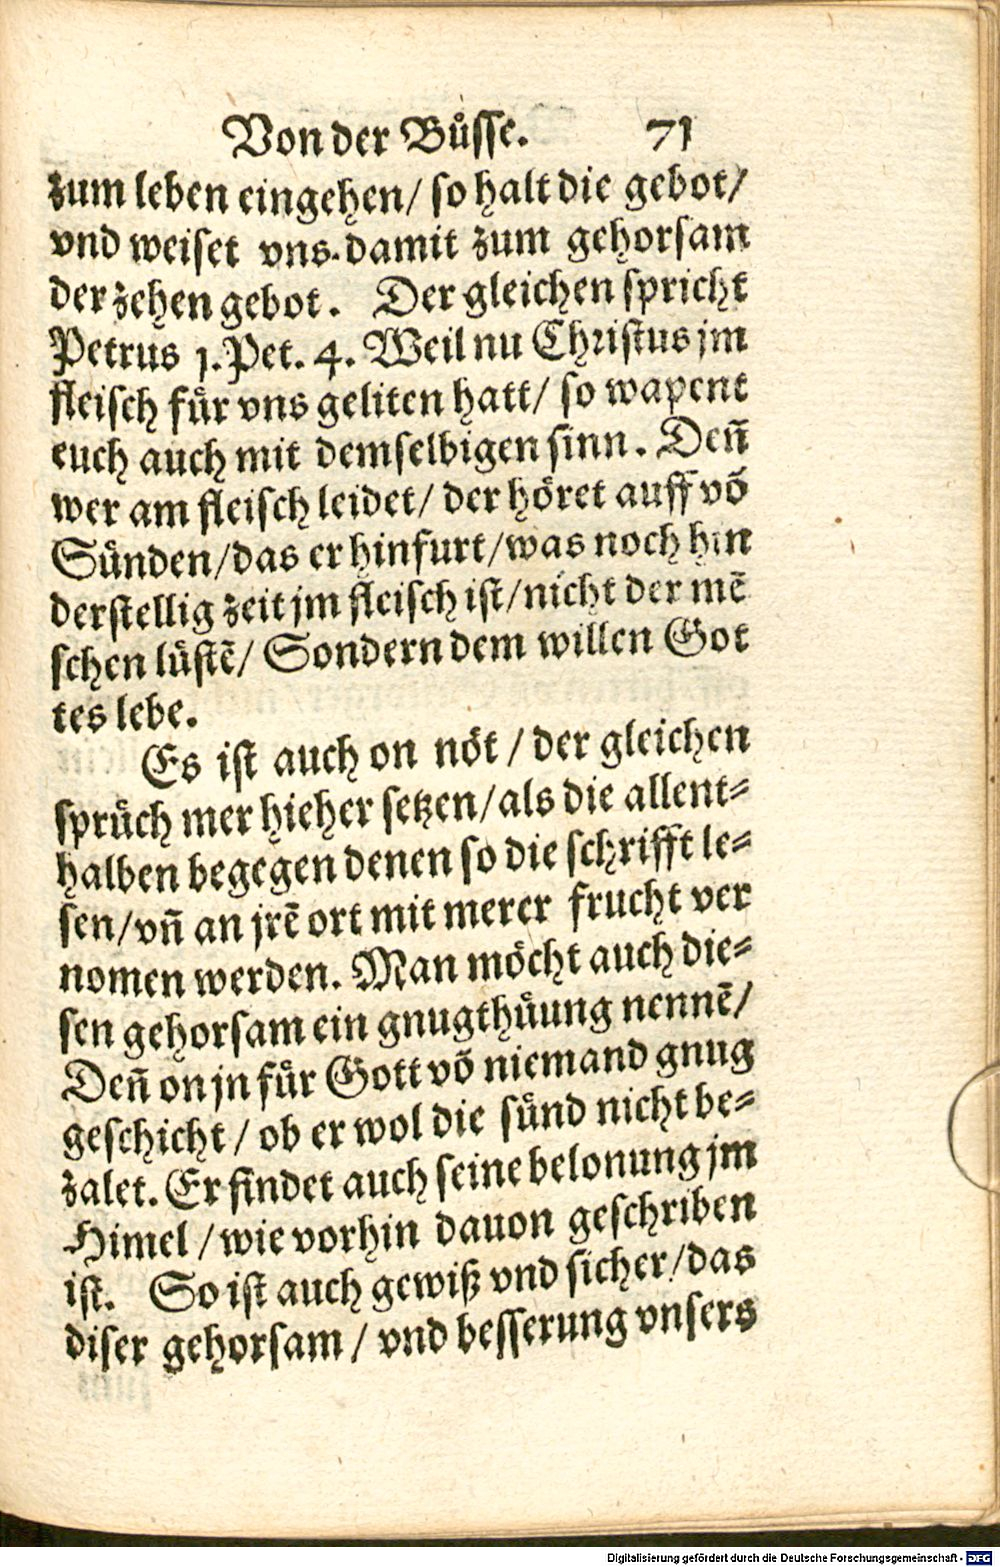 Von der Bůsse. 71
zum leben eingehen/ so halt die gebot/
vnd weiset vns damit zum gehorsam
der zehen gebot. Der gleichen spricht
Petrus 1. Pet. 4. Weil nu Christus jm
fleisch fůr vns geliten hatt/ so wapent
euch auch mit demselbigen sinn. Deñ
wer am fleisch leidet/ der höret auff võ
Sůnden/das er hinfurt/was noch hin
derstellig zeit jm fleisch ist/nicht der mẽ
schen lůstẽ/ Sondern dem willen Got
tes lebe.
Es ist auch on nöt / der gleichen
sprůch mer hieher setzen/als die allent⸗
halben begegen denen so die schrifft le⸗
sen/vñ an jrẽ ort mit merer frucht ver
nomen werden. Man möcht auch die⸗
sen gehorsam ein gnugthůung nennẽ/
Deñ on jn fůr Gott võ niemand gnug
geschicht / ob er wol die sůnd nicht be⸗
zalet. Er findet auch seine belonung jm
Himel / wie vorhin dauon geschriben
ist. So ist auch gewiß vnd sicher/das
diser gehorsam / vnd besserung vnsers
Digitalisierung gefördert durch die Deutsche Forschungsgemeinschaft - DFG